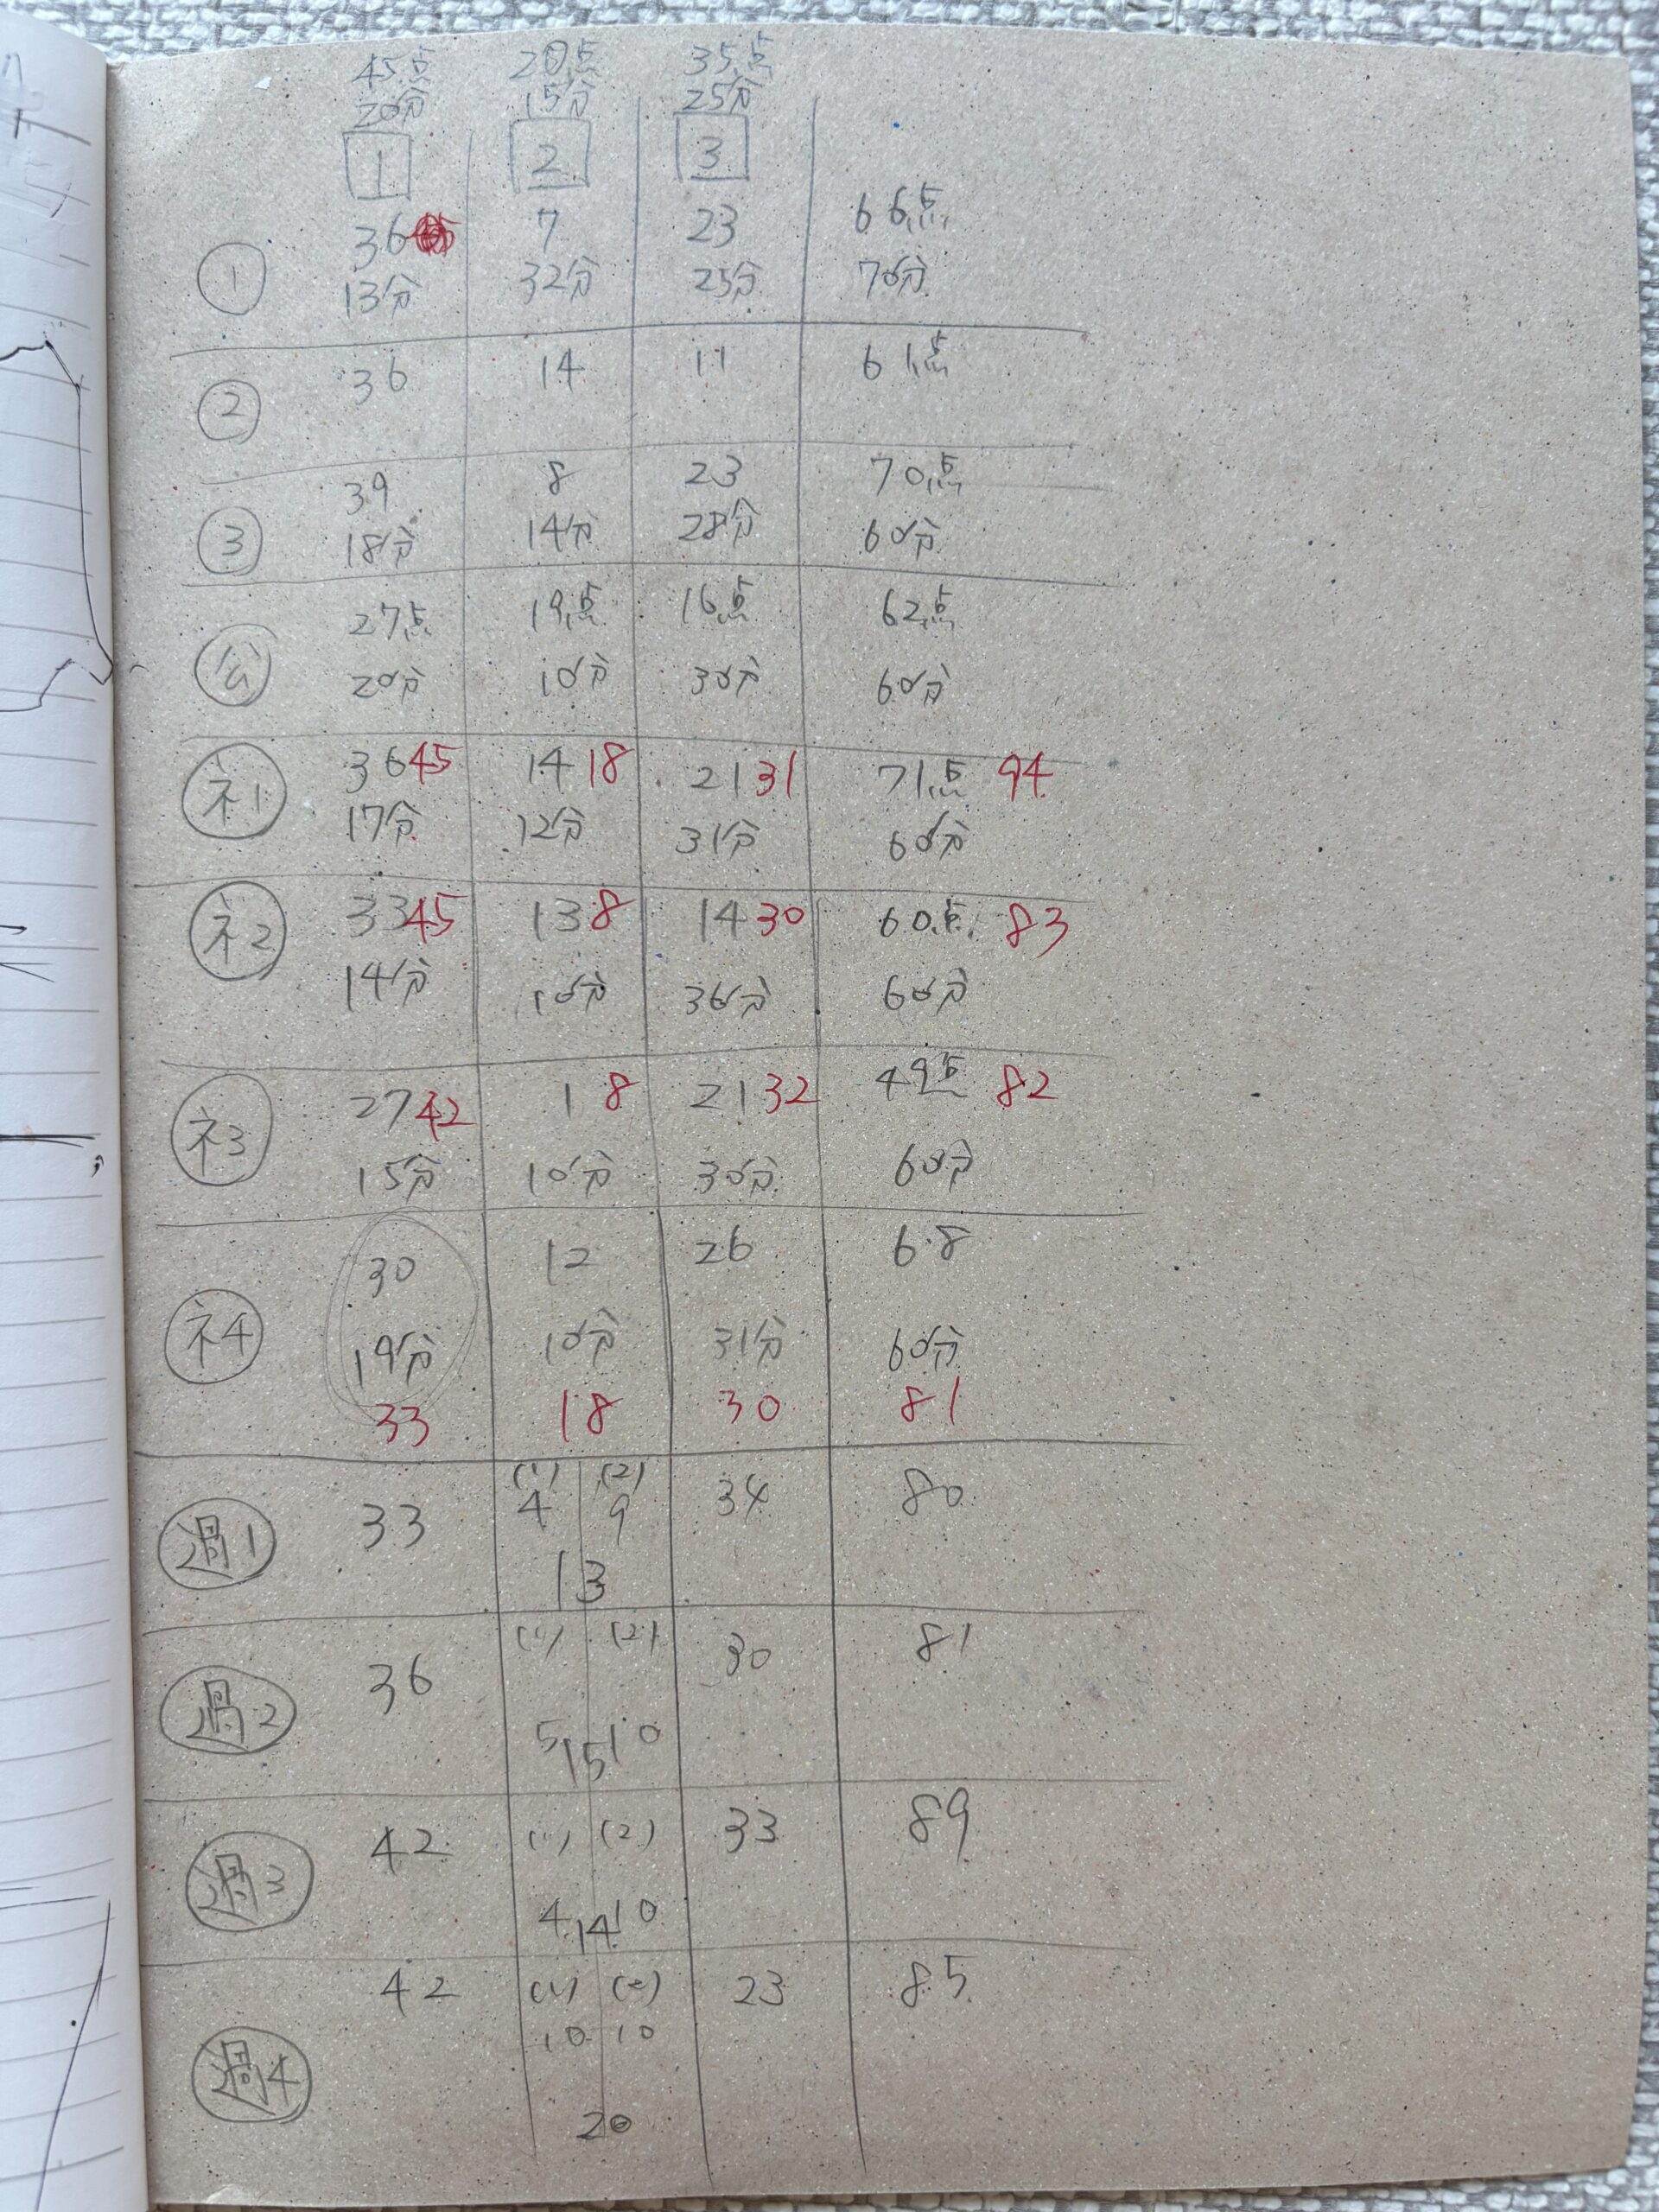 45点 20点 35点
20分 15分 25分
1 2 3
36 7 23 66点
① 13分 32分 25分 70分
② 36 14 11 61点
39 8 23 70点
③ 18分 14分 28分 60分
27点 19点 16点 62点
公 20分 10分 30分 60分
ネ1 36 45 14 18 21 31 71点 94
17分 12分 31分 60分
ネ2 33 45 13 8 14 30 60点 83
14分 10分 36分 60分
ネ3 27 42 1 8 21 32 49点 82
15分 10分 30分 60分
30 12 26 68
ネ4 19分 10分 31分 60分
33 18 30 81
(1) (2)
過1 33 4 9 34 80
13
(1) (2)
過2 36 30 81
5 15 10
過3 42 (1) (2) 33 89
4 14 10
42 (1) (2) 23 85
10 10
過4
20